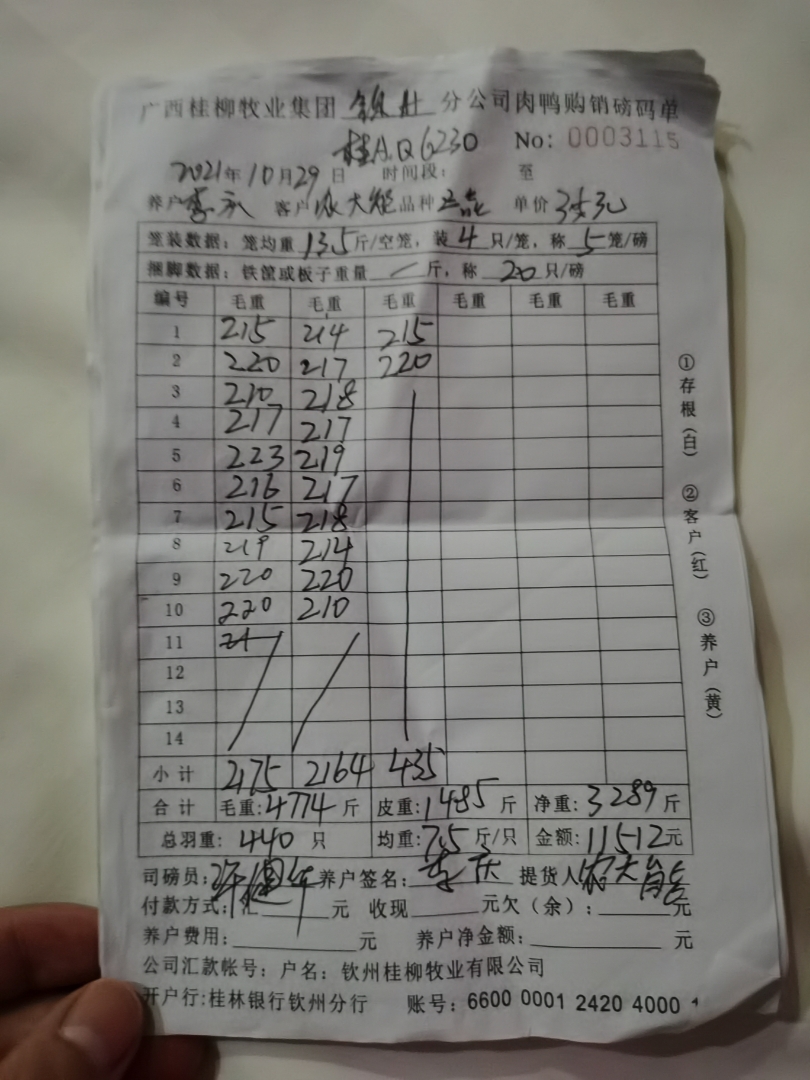 广西桂柳牧业集团 钦州 分公司肉鸭购销磅码单
桂A.Q6230 No: 0003115
2021年10月29日 时间段： 至
养户 客户农大能 品种 单价3.5元
笼装数据：笼均重13.5斤/空笼，装4只/笼，称5笼/磅
捆脚数据：铁筐或板子重量 斤，称20只/磅
编号 毛重 毛重 毛重 毛重 毛重 毛重
1 215 214 215
2 220 217 220
3 210 218
4 217 217
5 223 219
6 216 217
7 215 218
8 219 214
9 220 220
10 220 210
11
12
13
14
小计 2175 2164 435
合计 毛重:4774斤 皮重:1485斤 净重:3289斤
总羽重:440只 均重:7.5斤/只 金额:11512元
司磅员: 养户签名: 提货人农大能
付款方式：汇 元 收现 元欠（余）: 元
养户费用: 元 养户净金额: 元
公司汇款帐号：户名：钦州桂柳牧业有限公司
开户行:桂林银行钦州分行 账号：6600 0001 2420 4000 1
①存根（白） ②客户（红） ③养户（黄）